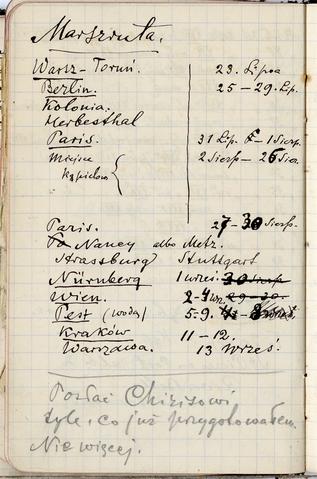 Marszruta.
Warsz-Toruń. 23. Lipca
Berlin. 25 – 29. Lip.
Kolonia.
Herbesthal
Paris. 31 Lip. – 1 Sierp.
Miejsce 2 Sierp – 26 Sier.
kąpielowe
Paris. 27 – 30 Sierp.
Nancy albo Metz.
Strassburg Stuttgart
Nürnberg 1 wrześ.
Wien. 2-4 wr.
Pest (wodą) 5-9.
Kraków 11 – 12.
Warszawa. 13 Wrześ.
Posłać
tyle, co już przygotowałem.
Nie więcej.